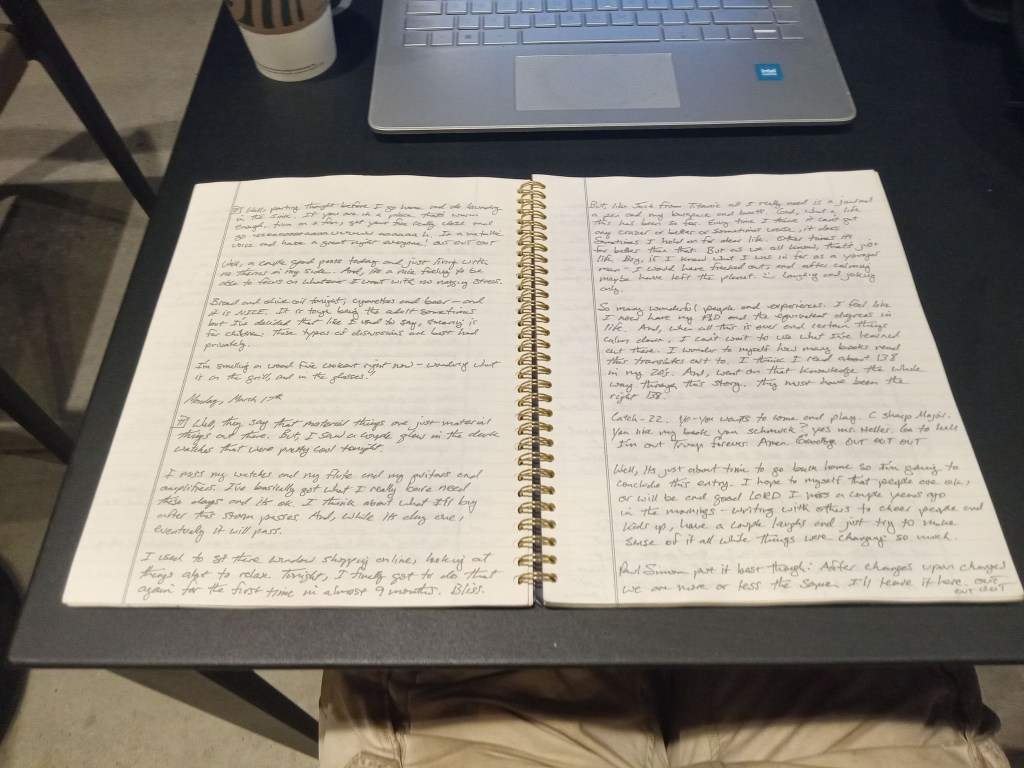 intel
Well, parting thought before I go home and do laundry
in the sink. If you are in a place that's warm
enough, turn on a fan, get your face really close and
go In a metallic
voice and have a great night everyone! OUT OUT OUT
Well, a couple good posts today and just living with
no thorns in my side. And, it's a nice feeling to be
able to focus on whatever I want with no nagging stress.
Bread and olive oil tonight, cigarettes and beer - and
it is NICE. It is tough being the adult sometimes
but I've decided that like I used to say, sharing is
for children. Those types of discussions are best had
privately.
I'm smelling a wood fire cookout right now - wondering what
is on the grill, and in the glasses!
Monday, March 17th
Well, they say that material things are just material
things out there. But, I saw a couple glow in the dark
watches that were pretty cool tonight.
I miss my watches and my flute and my guitars and
amplifiers. I've basically got what I really bare need
these days and it's ok. I think about what I'll buy
after this storm passes. And, while it's clay one,
eventually it will pass.
I used to sit there window shopping online, looking at
things alot to relax. Tonight, I finally got to do that
again for the first time in almost 9 months. Bliss.
But, like Jack from Titanic all I really need is a journal
a pen and my backpace and breath. God, what a life
this has been so far. Every time I think it can't get
any crazier or better or sometimes worse, it does.
Sometimes I hold on for dear life. Other times it's
far better than that. But as we all know, that's just
life. Boy, if I knew what I was in for as a younger
man - I would have freaked out, and after calming
maybe have left the planet :- laughing and joking
only.
So many wonderful people and experiences. I feel like
I now have my PHD and the equivalent degrees in
life. And, when all this is over and certain things
calm down, I can't wait to use what I've learned
out there. I wonder to myself how many books read
this translates out to. I think I read about 138
in my 20's. And, went on that knowledge the whole
way through this story. They must have been the
right 138.
Catch-22. Yo-yo wants to come and play. C sharp Major.
You like my bark you schmuck? yes Mr. Heller. Go to hell
I'm out Trump forever. Amen. Goodbye. OUT OUT OUT
Well, it's just about time to go back home so I'm going to
conclude this entry. I hope to myself that people are ok,
or will be and good LORD I miss a couple years ago
in the mornings - writing with others to cheer people and
kids up, have a couple laughs and just try to make
sense of it all while things were changing so much.
Paul Simon put it best though: After changes upon changes
we are more or less the same. I'll leave it here. OUT
OUT OUT